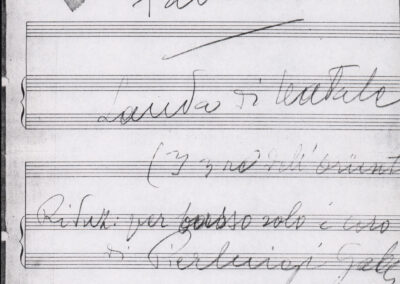 Lauda di Natale
(I 3 re dell'orient
Riduz: per basso solo e coro
di Pierluigi Gal